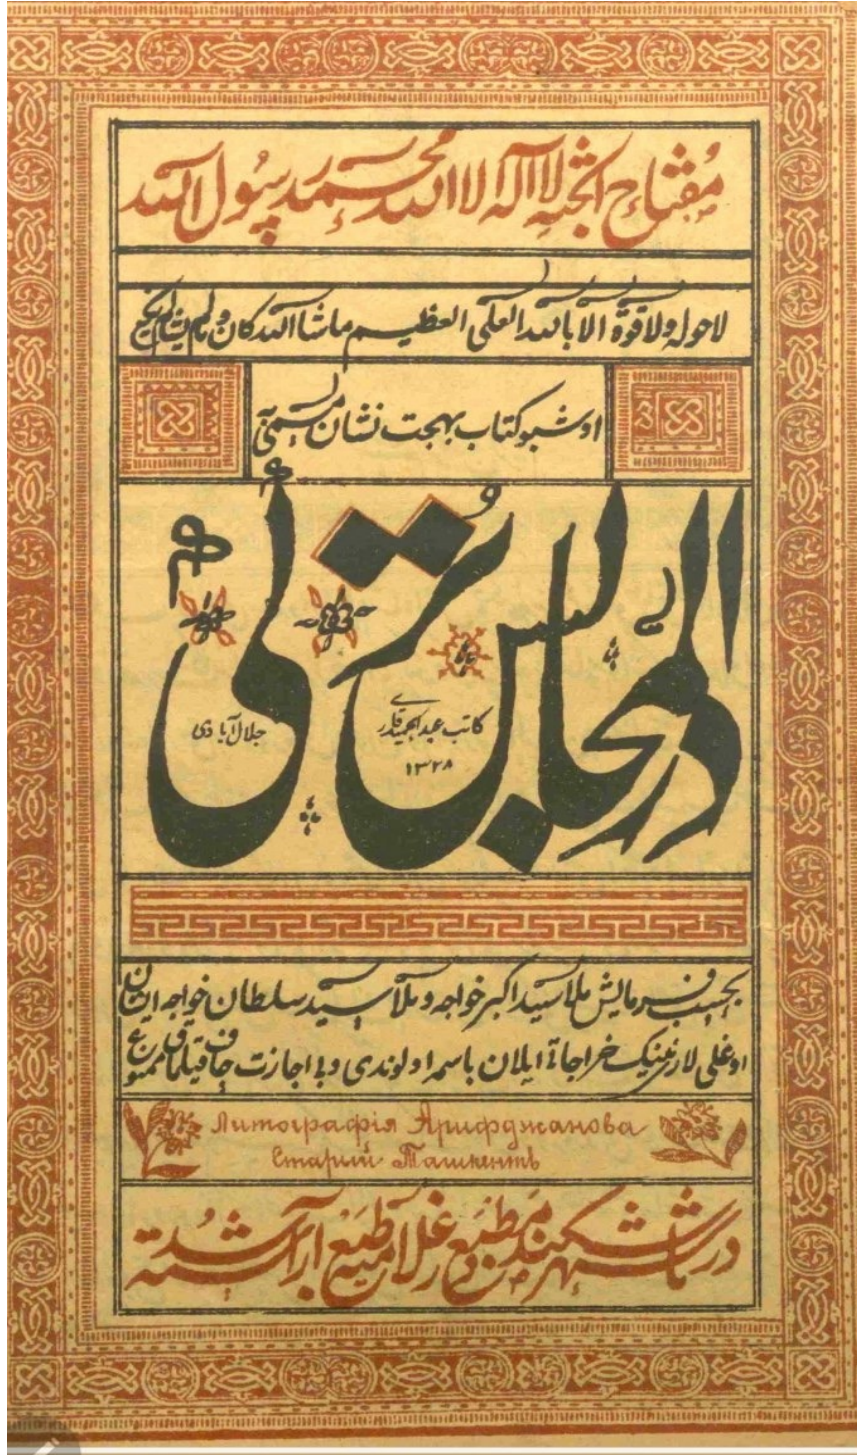 مفتاح الجنة لا اله الا الله محمد رسول الله
لاحول ولا قوة الا بالله العلى العظيم ماشا الله كان و مالم يشا لم يكن
اوشبو كتاب بهجت نشان مسمى
در المجالس تركى
كاتب عبد الحميد قارى
جلال آبادى
١٣٢٨
بحسب فرمايش ملا سيد اكبر خواجه و ملا سيد سلطان خواجه ايشان
اوغلى لارى نينك خراجاة ايلان باسمه اولوندى و بلا اجازت چاف قيلماق ممنوع
Литографія Арифджанова
Старый Ташкентъ
در شهر تاشكند در مطبع غلاميه طبع آراسته شد